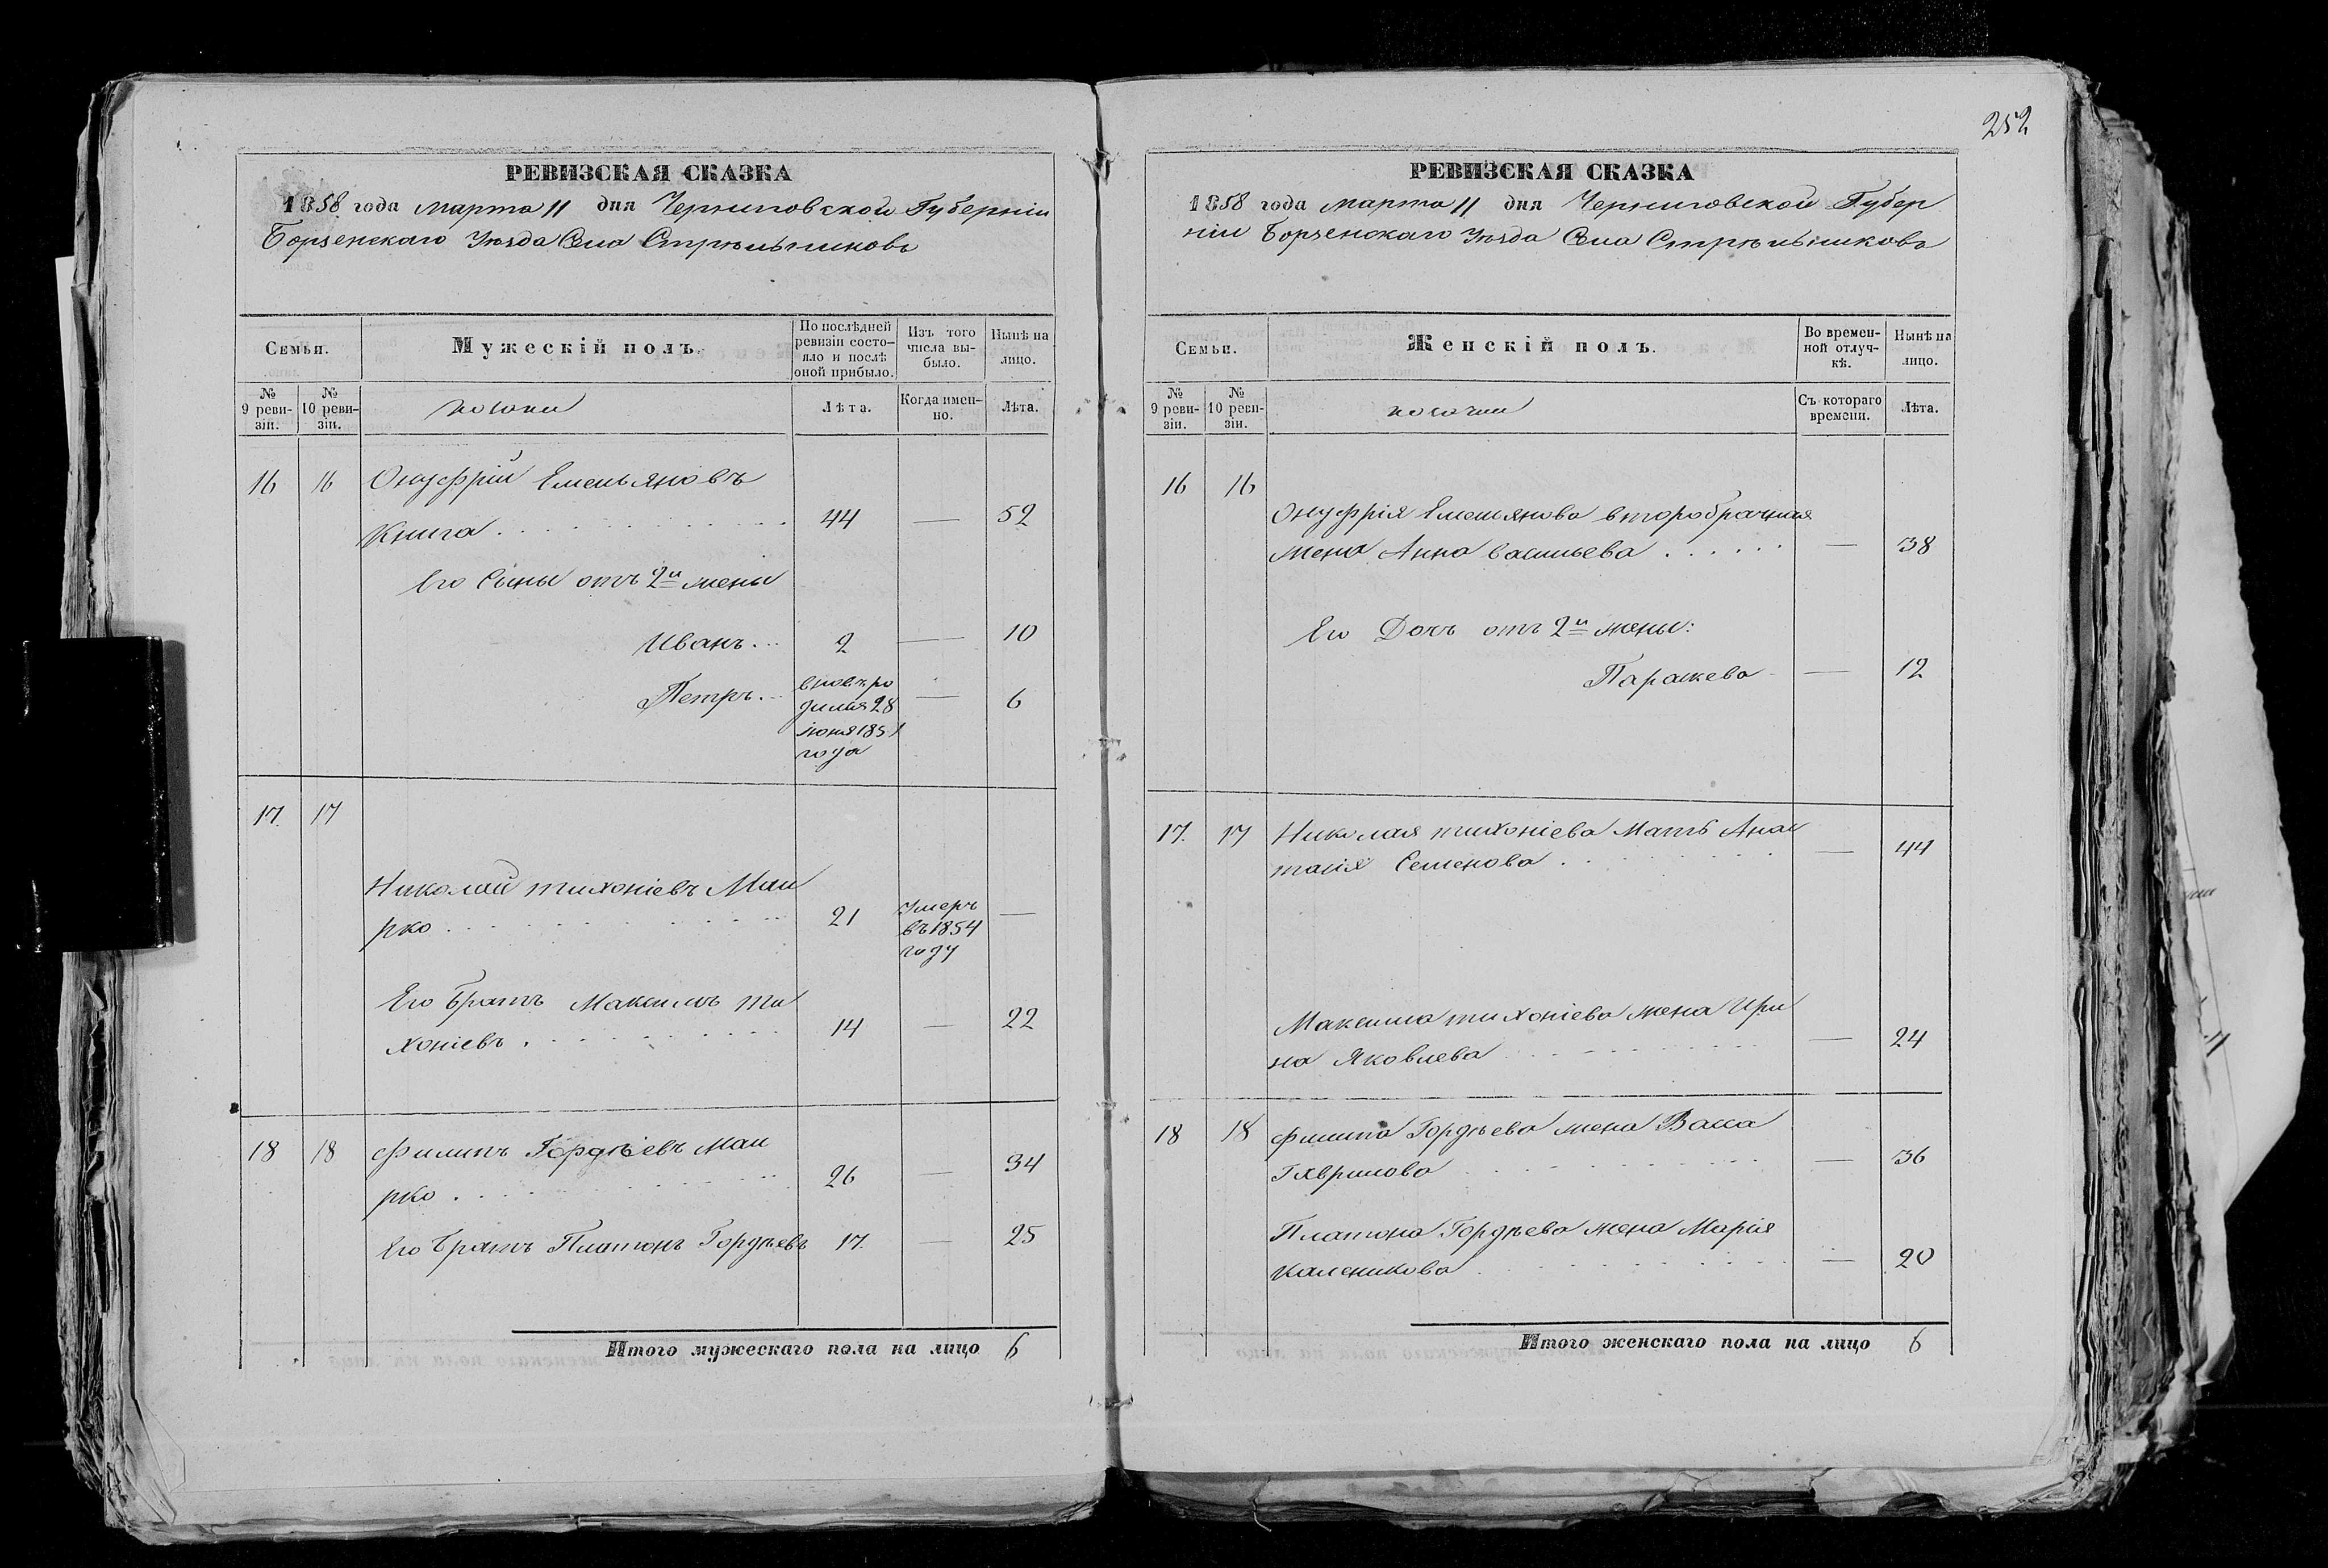 252
РЕВИЗСКАЯ СКАЗКА
1858 года марта 11 дня Черниговской Губерніи
Борзенскаго Уѣзда Села Стрѣльниковъ
Семьи.
Мужескій полъ.
По послѣдней ревизіи состояло и послѣ оной прибыло.
Изъ того числа выбыло.
Нынѣ на лицо.
№ 9 ревизіи.
№ 10 ревизіи.
козаки
Лѣта.
Когда именно.
Лѣта.
16 16 Онуфрій Емельяновъ
Книга 44 — 52
Его Сыны отъ 2й жены
Иванъ 2 — 10
Петръ вновь ро — 6
дился 28
іюня 1851
года
17. 17
Николай тихоніевъ Маи
рко 21 Умеръ —
въ 1854
году
Его братъ Максимъ ти
хоніевъ 14 — 22
18 18 Филипъ Гордѣевъ Маи
рко 26 — 34
Его братъ Платонъ Гордѣевъ 17. — 25
Итого мужескаго пола на лицо 6
РЕВИЗСКАЯ СКАЗКА
1858 года марта 11 дня Черниговской Губер
ніи Борзенскаго Уѣзда Села Стрѣльниковъ
Семьи.
Женскій полъ.
Во временной отлучкѣ.
Нынѣ на лицо.
№ 9 ревизіи.
№ 10 ревизіи.
козачки
Съ котораго времени.
Лѣта.
16 16
Онуфрія Емельянова второбрачная
жена Анна васильева — 38
Его Дочь отъ 2й жены:
Параскева — 12
17. 17 Николая тихоніева Мать Анас
тасія Семенова — 44
Максима тихоніева жена Ири
на Яковлева — 24
18 18 Филипа Гордѣева жена Васса
Гаврилова — 36
Платона Гордѣева жена Марія
Каленикова — 20
Итого женскаго пола на лицо 6